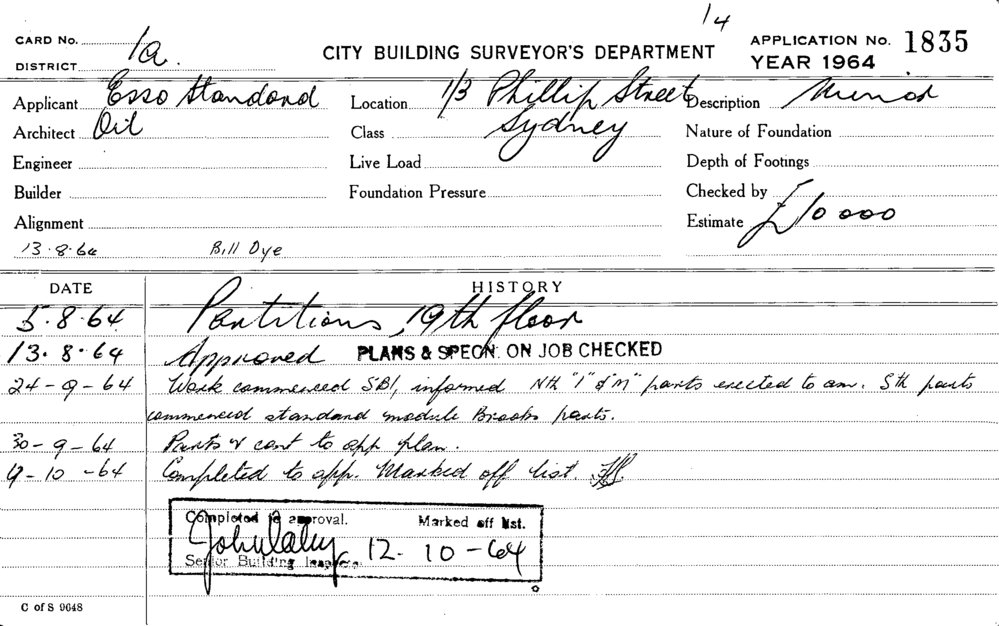 1/4
CARD No. 1a. CITY BUILDING SURVEYOR'S DEPARTMENT APPLICATION No. 1835
DISTRICT YEAR 1964
Applicant Esso Standard Location 1/3 Phillip Street Description Minor
Architect Oil Class Sydney Nature of Foundation
Engineer Live Load Depth of Footings
Builder Foundation Pressure Checked by
Alignment Estimate £10000
13.8.64 Bill Dye
DATE HISTORY
5.8.64 Partitions, 19th floor
13.8.64 Approved PLANS & SPECN. ON JOB CHECKED
24-9-64 Work commenced SBI, informed Nth "I" of M" parts erected to am. Sth parts
commenced standard module parts.
30-9-64 Parts cont to app plan.
9-10-64 Completed to app. Marked off list.
Completed to approval. Marked off list.
12-10-64
Senior Building Inspector
C of S 9648